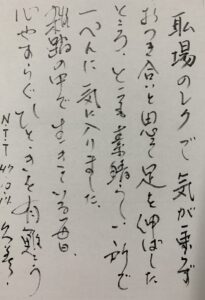 職場のレクで気が重ず
おつき合いと思って足を伸ばした
ところ、とても素晴らしい所で
一ぺんに気に入りました。
雑踏の中で生きている毎日、
心やすらぐひとときを有難う
NTT